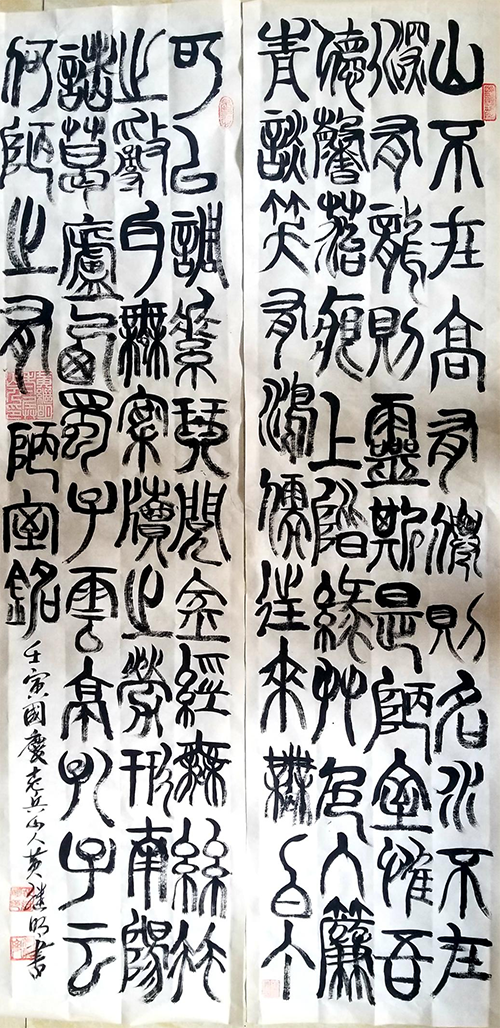 山不在高有僊則名水不在
深有龍則靈斯是陋室惟吾
德馨苔痕上階綠艸色入簾
青談笑有鴻儒往來無白丁
可以調素琴閱金經無絲竹
之亂耳無案牘之勞形南陽
諸葛廬西蜀子雲亭孔子云
何陋之有 陋室銘 壬寅國慶老兵山人黃繼明書